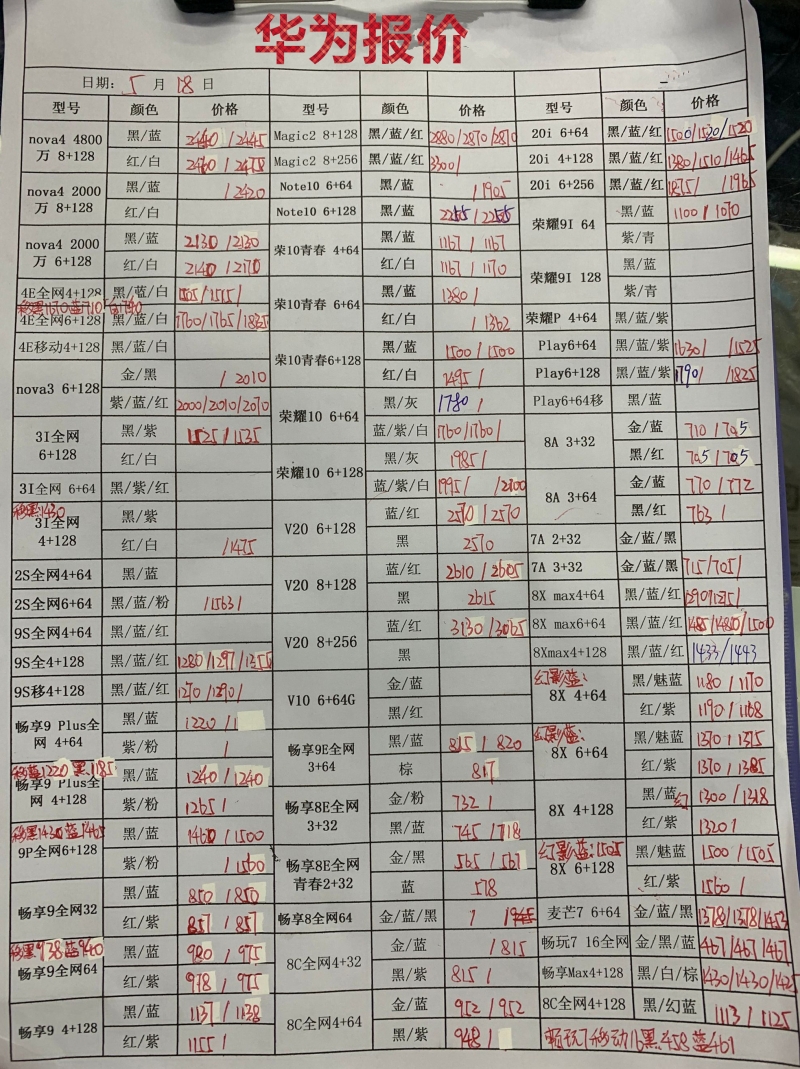 华为报价
日期: 5 月 18 日
型号 颜色 价格 型号 颜色 价格 型号 颜色 价格
nova4 4800万 8+128 黑/蓝 2440/2445
红/白 2460/2458
nova4 2000万 8+128 黑/蓝 /2420
红/白
nova4 2000万 6+128 黑/蓝 2130/2130
红/白 2140/2170
4E全网4+128 黑/蓝/白 1505/1515/
4E全网6+128 黑/蓝/白 1760/1765/1835
4E移动4+128 黑/蓝/白
nova3 6+128 金/黑 /2010
紫/蓝/红 2000/2010/2070
3I全网 6+128 黑/紫 1525/1535
红/白
3I全网 6+64 黑/紫/红
移黑1430
3I全网 4+128 黑/紫
红/白 /1475
2S全网4+64 黑/蓝
2S全网6+64 黑/蓝/粉 /1563/
9S全网4+64 黑/蓝/红
9S全4+128 黑/蓝/红 1280/1297/1355
9S移4+128 黑/蓝/红 1270/1290/
畅享9 Plus全网 4+64 黑/蓝 1220/1
紫/粉 /
移蓝1220 黑1185
畅享9 Plus全网 4+128 黑/蓝 1240/1240
紫/粉 1265/
移黑1430蓝1465
9P全网6+128 黑/蓝 1460/1500
紫/粉 /1560
畅享9全网32 黑/蓝 850/850
红/紫 857/857
移黑938蓝940
畅享9全网64 黑/蓝 980/975
红/紫 978/975
畅享9 4+128 黑/蓝 1137/1138
红/紫 1155/
Magic2 8+128 黑/蓝/红 2880/2870/2870
Magic2 8+256 黑/蓝/红 3300/
Note10 6+64 黑/蓝 /1905
Note10 6+128 黑/蓝 2255/2255
荣10青春 4+64 黑/蓝 1167/1167
红/白 1167/1170
荣10青春 6+64 黑/蓝 1380/
红/白 /1362
荣10青春6+128 黑/蓝 1500/1500
红/白 1495/
荣耀10 6+64 黑/灰 1780/
蓝/紫/白 1760/1760/
荣耀10 6+128 黑/灰 1985/
蓝/紫/白 1995/ /2100
V20 6+128 蓝/红 2570/2570
黑 2570
V20 8+128 蓝/红 2610/2605
黑 2615
V20 8+256 蓝/红 3130/3065
黑
V10 6+64G 金/蓝
黑/红
畅享9E全网 3+64 黑/蓝 815/820
棕 817
畅享8E全网 3+32 金/粉 732/
黑/蓝 745/718
畅享8E全网青春2+32 金/黑 565/567
蓝 578
畅享8全网64 金/蓝/黑 / /945
8C全网4+32 金/蓝 /815
黑/紫 815/
8C全网4+64 金/蓝 952/952
黑/紫 948/
20i 6+64 黑/蓝/红 1500/1520/1520
20i 4+128 黑/蓝/红 1380/1510/1465
20i 6+256 黑/蓝/红 1875/ /1965
荣耀9I 64 黑/蓝 1100/1070
紫/青
荣耀9I 128 黑/蓝
紫/青
荣耀P 4+64 黑/蓝/紫
Play6+64 黑/蓝/紫 1630/ /1525
Play6+128 黑/蓝/紫 1790/ /1825
Play6+64移 黑/蓝
8A 3+32 金/蓝 710/705
黑/红 705/705
8A 3+64 金/蓝 770/772
黑/红 763/
7A 2+32 金/蓝/黑
7A 3+32 金/蓝/黑 715/705/
8X max4+64 黑/蓝/红 1290/1215/
8X max6+64 黑/蓝/红 1485/1480/1500
8Xmax4+128 黑/蓝/红 1433/1443
幻影蓝:
8X 4+64 黑/魅蓝 1180/1170
红/紫 1190/1168
幻影蓝:
8X 6+64 黑/魅蓝 1370/1375
红/紫 1370/1385
8X 4+128 黑/蓝 红 1300/1318
红/紫 1320/
幻影蓝:1505
8X 6+128 黑/魅蓝 1500/1505
红/紫 1560/
麦芒7 6+64 金/蓝/黑 1378/1378/1453
畅玩7 16全网 金/黑/蓝 467/467/467
畅享Max4+128 黑/白/棕 1430/1430/1425
8C全网4+128 黑/幻蓝 1113/1125
畅玩7移动16黑:458 蓝461